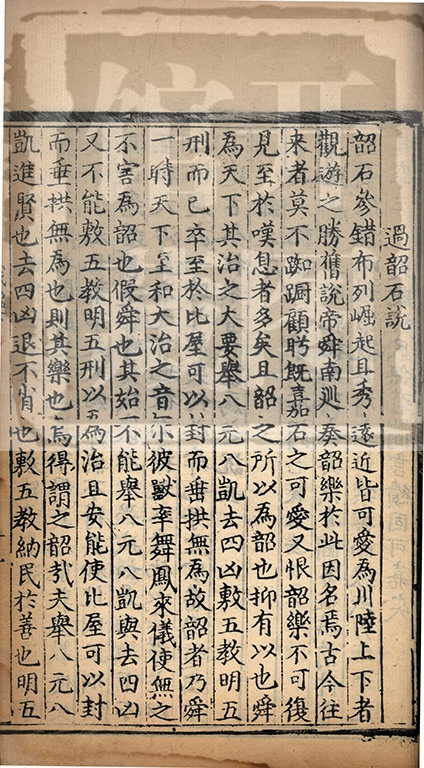 過韶石說
韶石參錯布列崛起且秀遠近皆可愛為川陸上下者
觀遊之勝舊說帝舜南巡奏韶樂於此因名焉古今往
来者莫不踟蹰顧眄既嘉石之可愛又恨韶樂不可復
見至於嘆息者多矣且韶之所以為韶也抑有以也舜
為天下其治之大要舉八元八凱去四凶敷五教明五
刑而已卒至於比屋可以封而垂拱無為故韶者乃舜
一時天下至和大治之音尓彼獸率舞鳳來儀使無之
不害為韶也假舜也其始不能舉八元八凱與去四凶
又不能敷五教明五刑以為治且安能使比屋可以封
而垂拱無為也則其樂也焉得謂之韶㢤夫舉八元八
凱進賢也去四凶退不肖也敷五教納民於善也明五